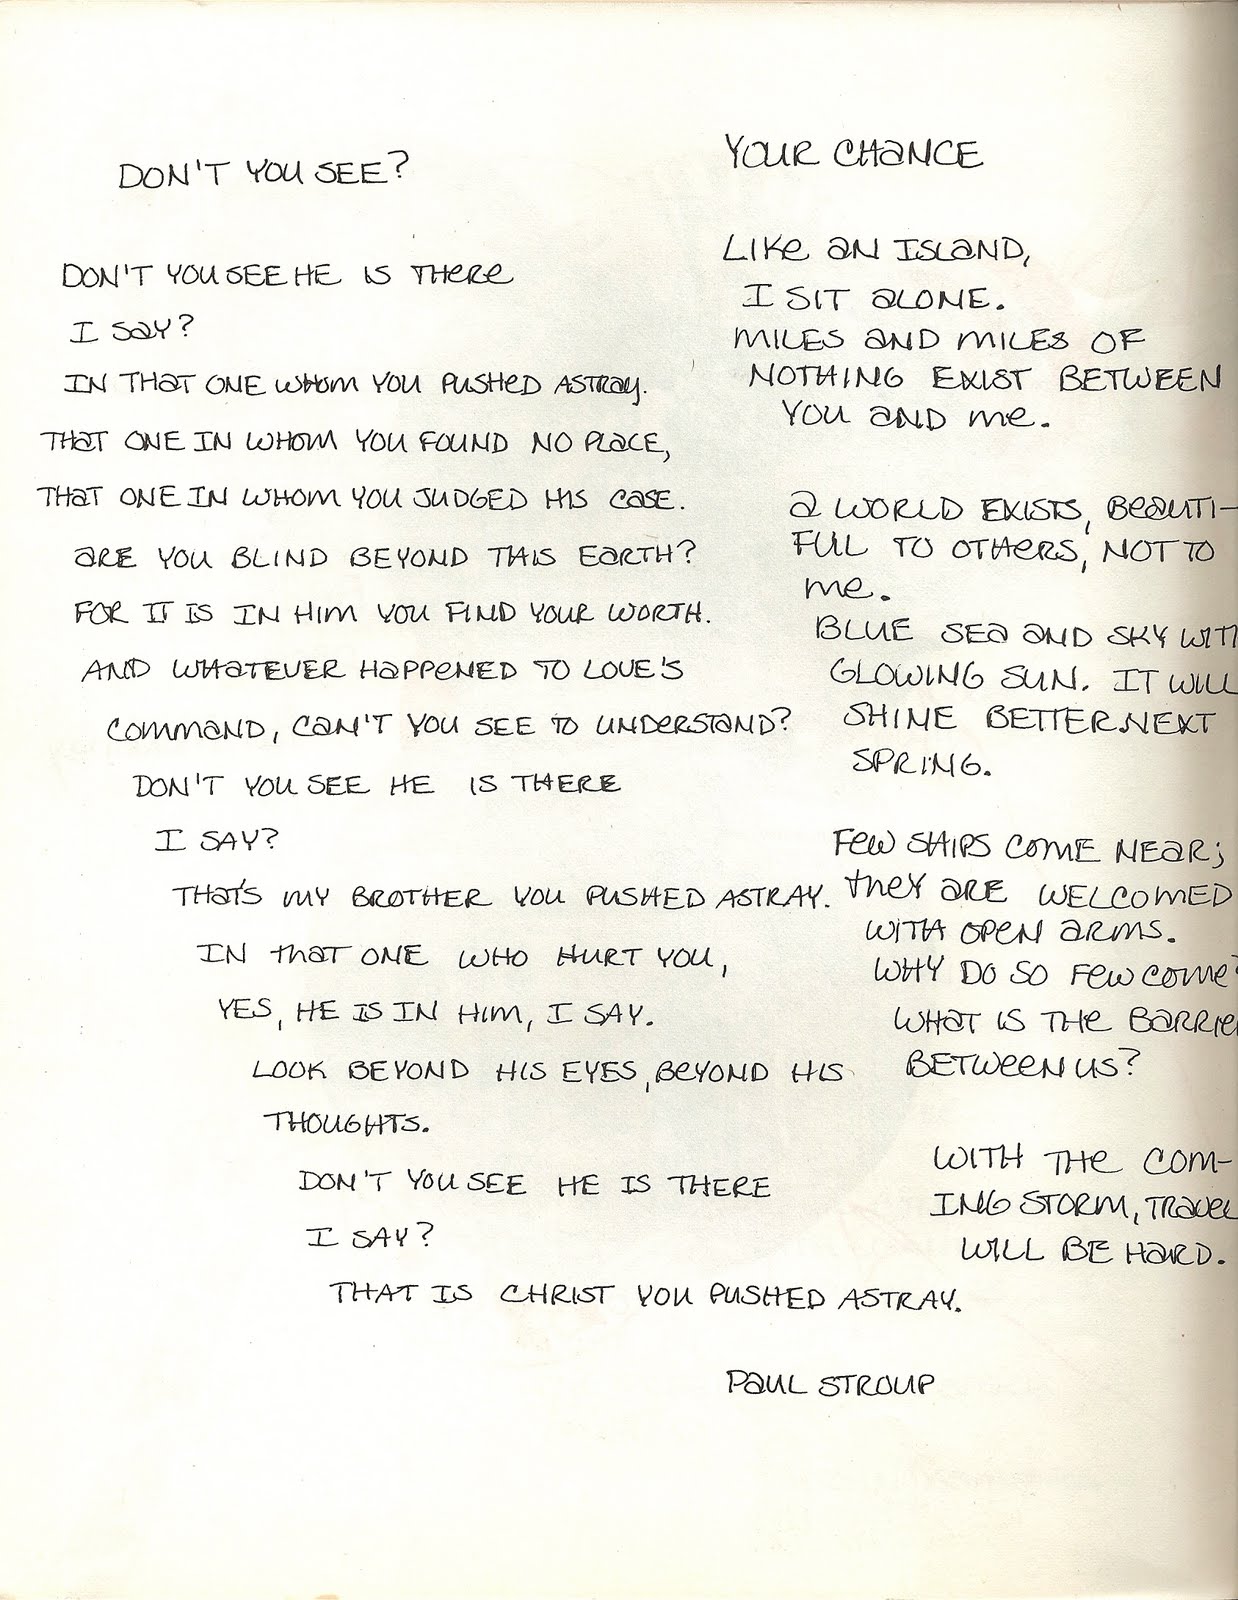 DON'T YOU SEE?
DON'T YOU SEE HE IS THERE
I SAY?
IN THAT ONE WHOM YOU PUSHED ASTRAY.
THAT ONE IN WHOM YOU FOUND NO PLACE,
THAT ONE IN WHOM YOU JUDGED HIS CASE.
ARE YOU BLIND BEYOND THIS EARTH?
FOR IT IS IN HIM YOU FIND YOUR WORTH.
AND WHATEVER HAPPENED TO LOVE'S
COMMAND, CAN'T YOU SEE TO UNDERSTAND?
DON'T YOU SEE HE IS THERE
I SAY?
THAT'S MY BROTHER YOU PUSHED ASTRAY.
IN THAT ONE WHO HURT YOU,
YES, HE IS IN HIM, I SAY.
LOOK BEYOND HIS EYES, BEYOND HIS
THOUGHTS.
DON'T YOU SEE HE IS THERE
I SAY?
THAT IS CHRIST YOU PUSHED ASTRAY.
PAUL STROUP
YOUR CHANCE
LIKE AN ISLAND,
I SIT ALONE.
MILES AND MILES OF
NOTHING EXIST BETWEEN
YOU AND ME.
A WORLD EXISTS, BEAUTI-
FUL TO OTHERS, NOT TO
ME.
BLUE SEA AND SKY WITH
GLOWING SUN. IT WILL
SHINE BETTER NEXT
SPRING.
FEW SHIPS COME NEAR;
THEY ARE WELCOMED
WITH OPEN ARMS.
WHY DO SO FEW COME?
WHAT IS THE BARRIER
BETWEEN US?
WITH THE COM-
ING STORM, TRAVEL
WILL BE HARD.